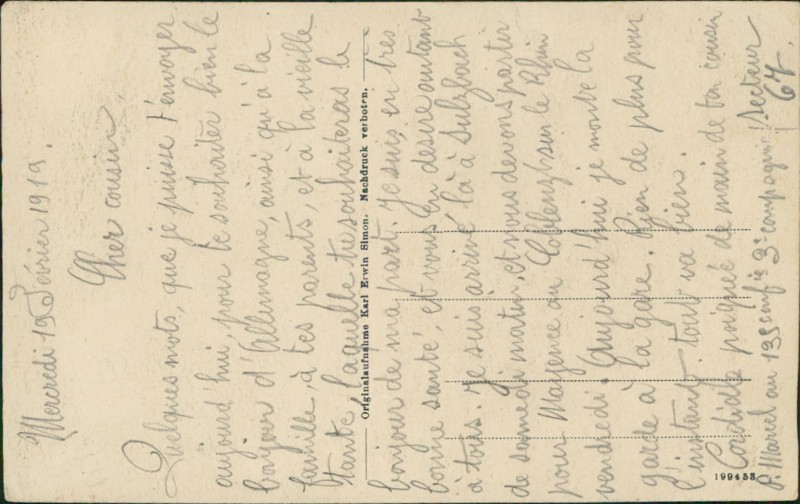 Mercredi 19 Février 1919.
Cher cousin
Quelques mots, que je puisse t'envoyer
aujourd'hui, pour te souhaiter bien le
bonjour d'Allemagne, ainsi qu'à la
famille, à tes parents, et à la vieille
tante, laquelle tu souhaiteras le
bonjour de ma part. Je suis en très
bonne santé, et vous en désire autant
à tous. Je suis arrivé là à Sulzbach
de samedi matin, et nous devons partir
pour Mayence ou Coblenz sur le Rhin
vendredi. Aujourd'hui je monte la
garde à la gare. Rien de plus pour
l'instant, tout va bien.
Cordiale poignée de main de ton cousin
P. Marcel au 135e 3e compagnie Secteur
67.
Originalaufnahme Karl Erwin Simon. Nachdruck verboten.
199453